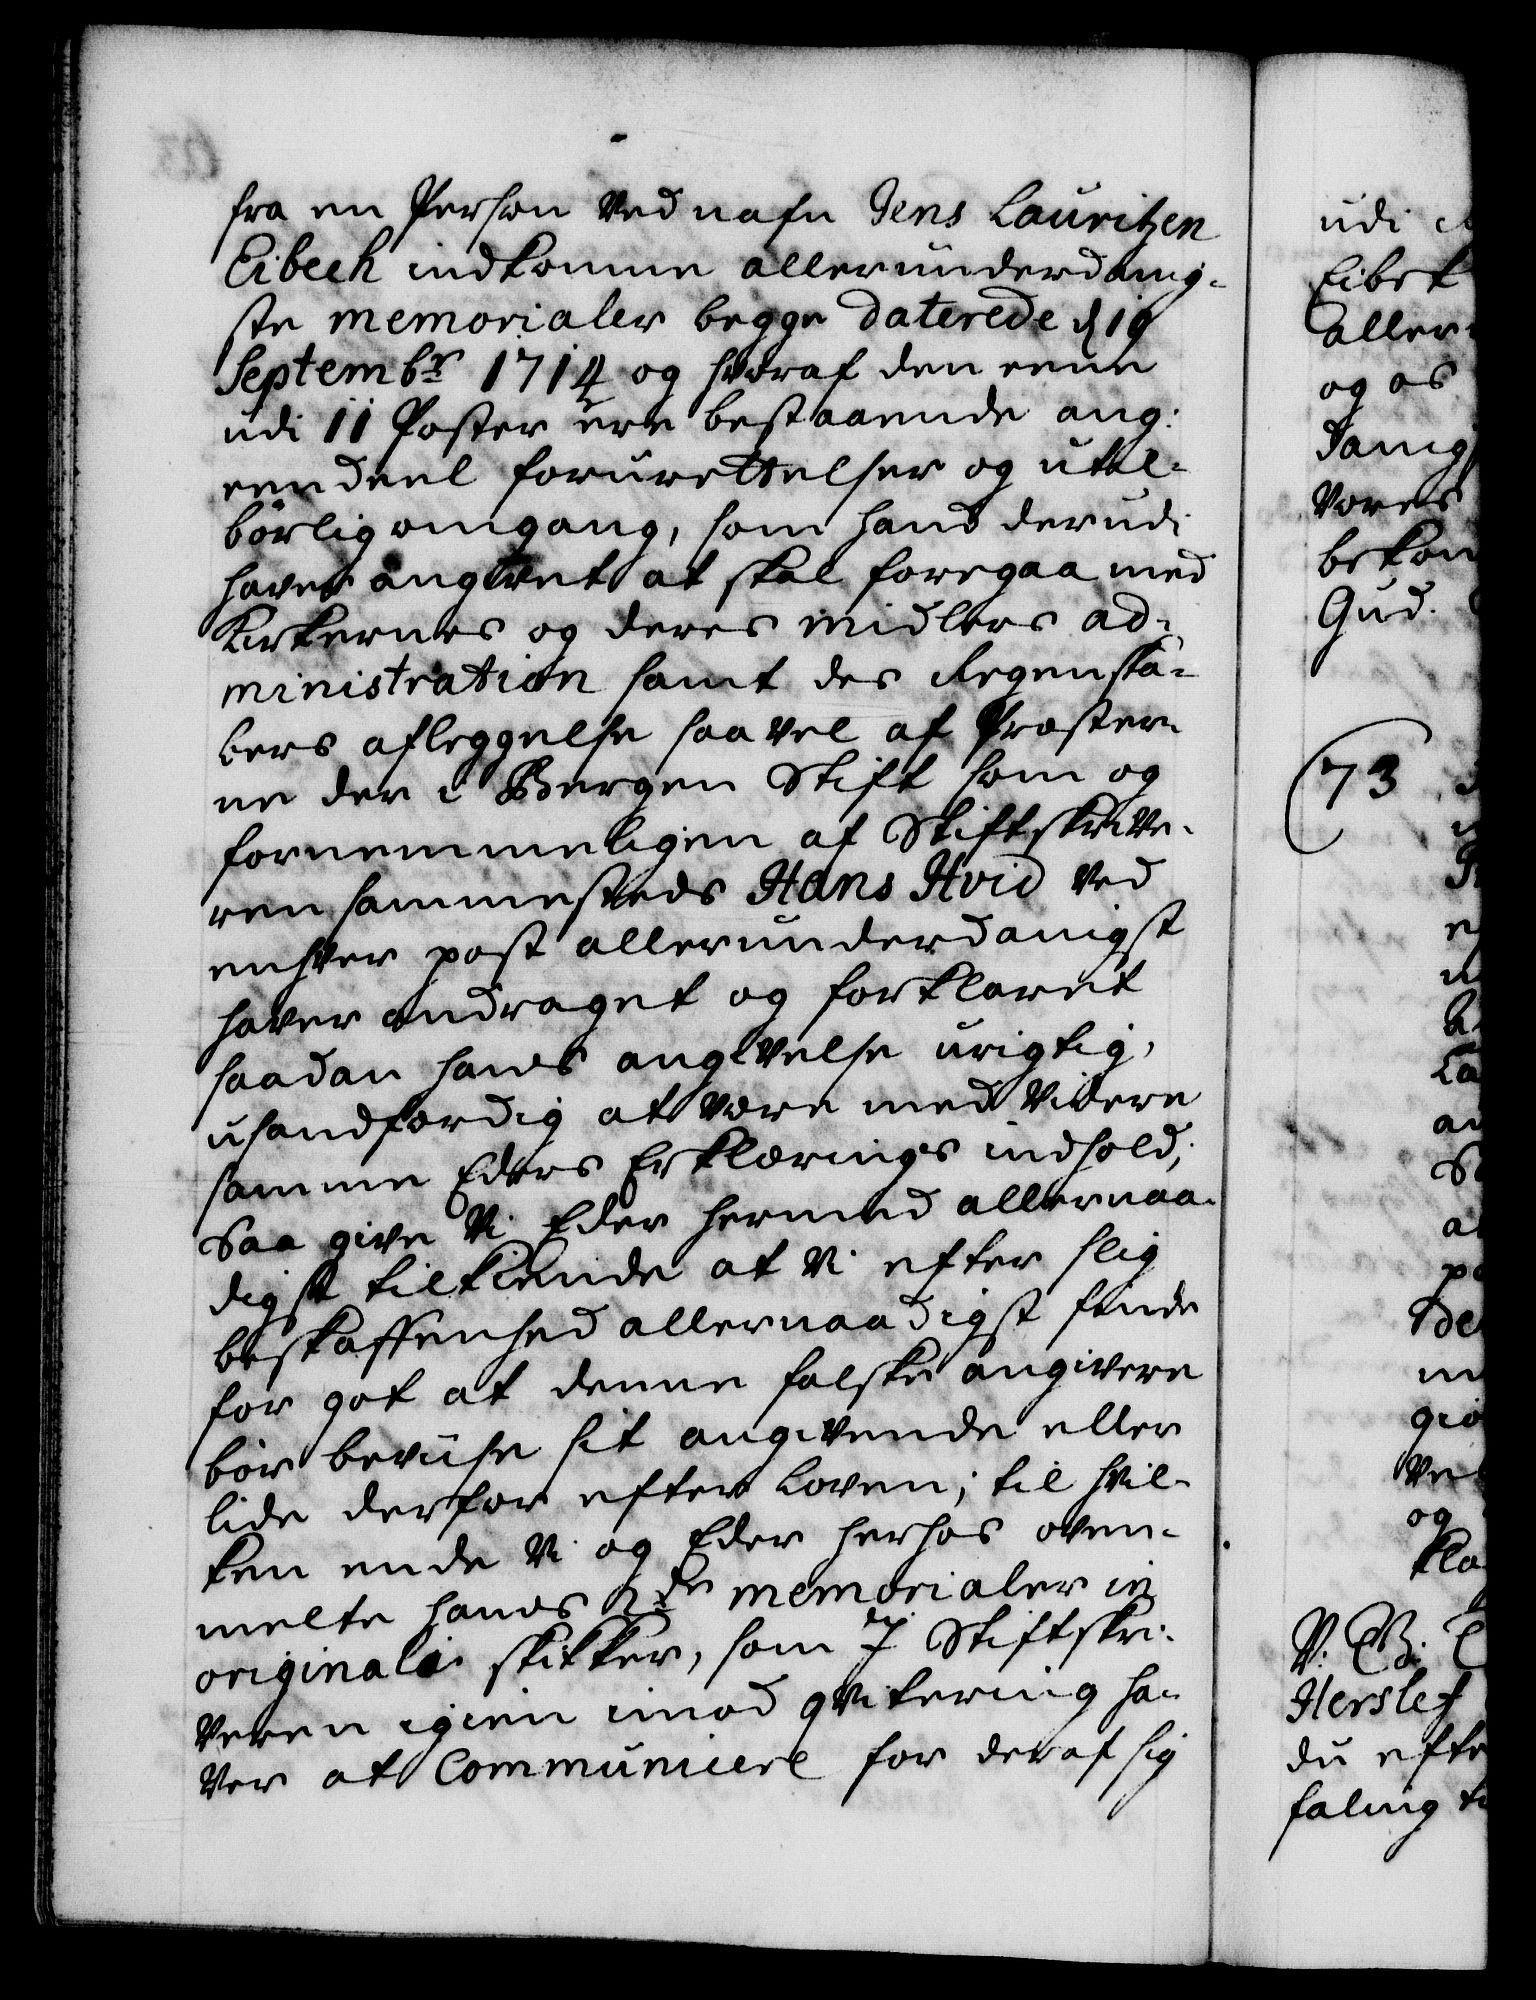 fra en Person ved nafn Jens Lauritzen
Eibech indkomne allerunderdanig-
ste memorialer begge daterede d 19
Septembr 1714 og hvoraf den eene
udi 11 Poster ere bestaaende ang:
eendeel forurettelser og util-
börlig omgang, som hand derudi
haver angivet at skal foregaa med
Kirkernes og deres midlers ad-
ministration samt des Regenska-
bers afleggelse saavel af Præster-
ne der i Bergen Stift som og
fornemmeligen af Stiftskrive-
ren sammesteds Hans Hvid ved
enhver post allerunderdanigst
haver andraget og forklaret
saadan hands angivelse urigtig,
usandfærdig at være med videre
samme Eders Erklærings indhold;
Saa give Vi Eder hermed allernaa-
digst tilkiende at Vi efter slig
beskaffenhed allernaadigst finde
for got at denne falske angivere
bör beviise sit angivende eller
lide derfor efter Loven; til hvil-
ken ende Vi og Eder herhos oven-
melte hands 2de memorialer in
originali skikker, som I Stiftskri-
veren igien imod qvitering ha-
ver at Communicere for deraf sig
udi
Eibek
aller
og os
danig
Vores
bekom
Gud.
73
De
og
kla
Herslef
du efte
faling